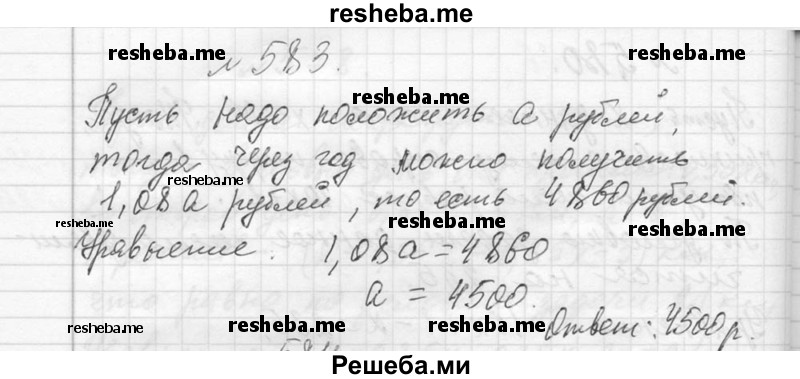 resheba.me
resheba.me resheba.me
№ 583.
resheba.me
Пусть надо положить а рублей,
тогда через год можно получить
resheba.me
1,08а рублей, то есть 4860 рублей.
resheba.me resheba.me
Уравнение. 1,08а = 4860
а = 4500.
resheba.me resheba.me
Ответ: 4500 р.
Решеба.ми